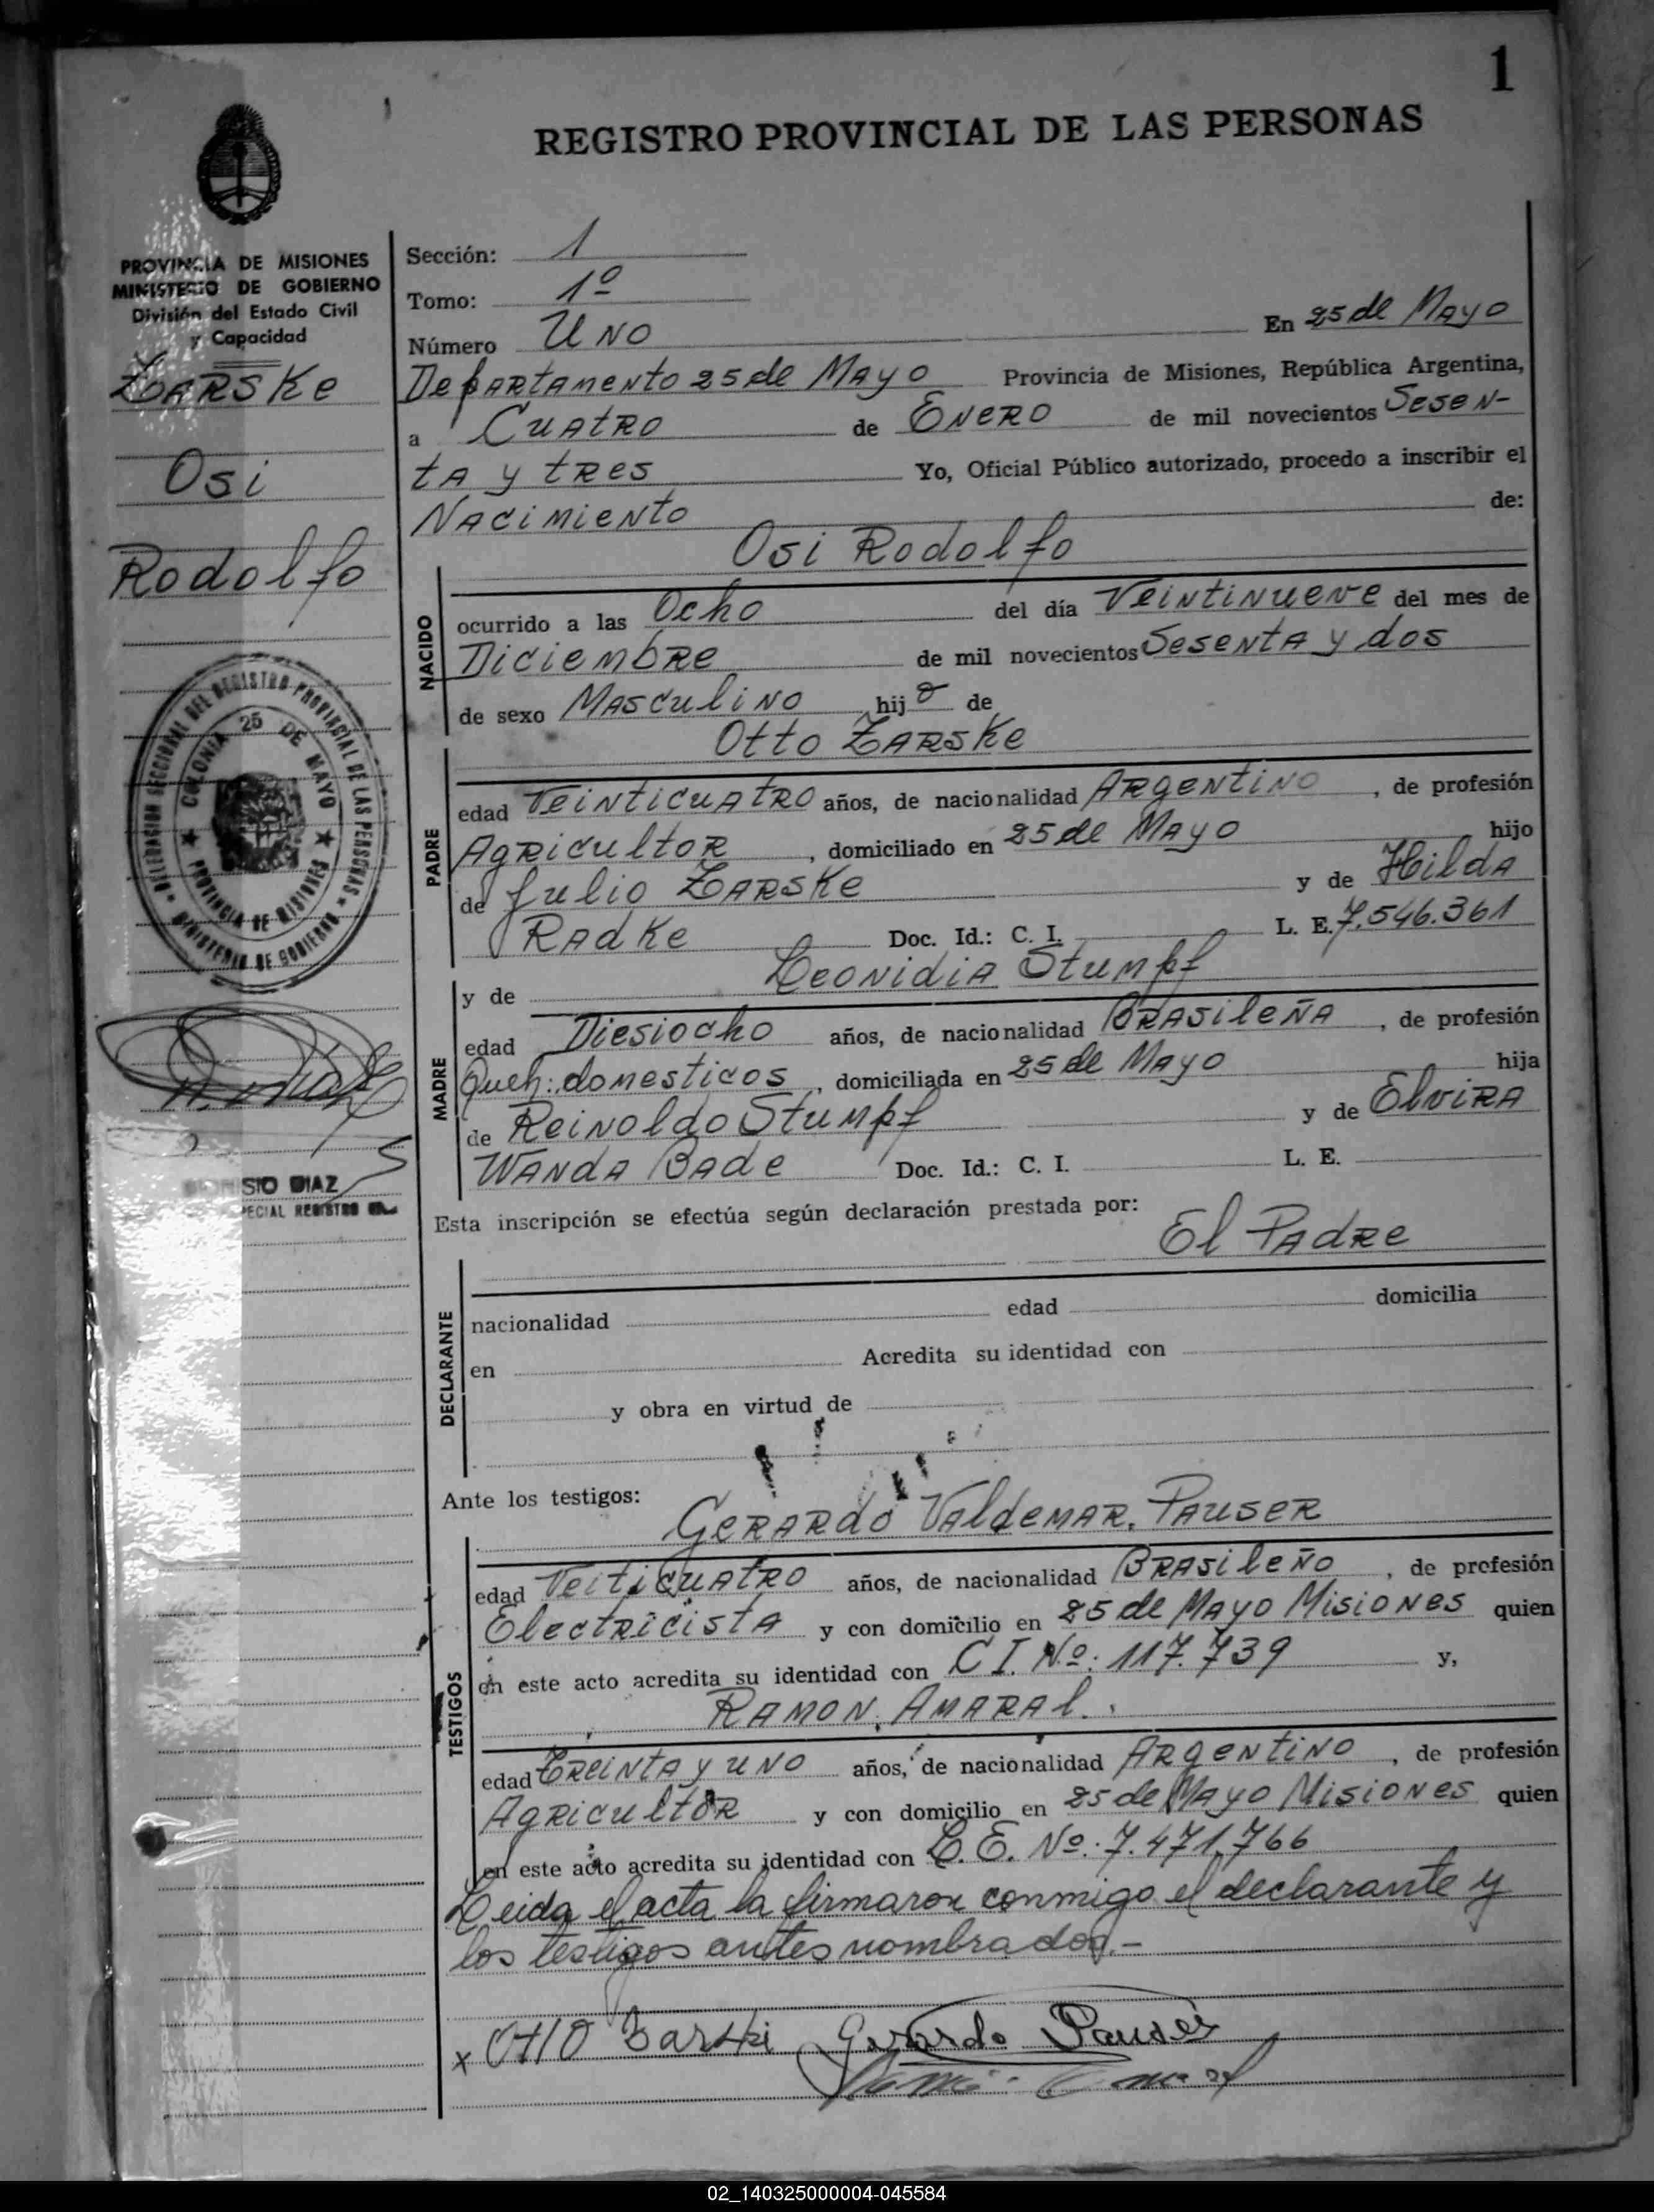 1
REGISTRO PROVINCIAL DE LAS PERSONAS
PROVINCIA DE MISIONES
MINISTERIO DE GOBIERNO
División del Estado Civil
y Capacidad
Zarske
Osi
Rodolfo
DELEGACION SECCIONAL DEL REGISTRO PROVINCIAL DE LAS PERSONAS
MINISTERIO DE GOBIERNO
COLONIA 25 DE MAYO
PROVINCIA DE MISIONES
SIO DIAZ
PECIAL REGISTRO
Sección: 1
Tomo: 1º
Número Uno En 25 de Mayo
Departamento 25 de Mayo Provincia de Misiones, República Argentina,
a Cuatro de Enero de mil novecientos Sesen-
ta y tres Yo, Oficial Público autorizado, procedo a inscribir el
Nacimiento de:
Osi Rodolfo
NACIDO
ocurrido a las Ocho del día Veintinueve del mes de
Diciembre de mil novecientos Sesenta y dos
de sexo Masculino hijo de
Otto Zarske
PADRE
edad Veinticuatro años, de nacionalidad Argentino, de profesión
Agricultor, domiciliado en 25 de Mayo hijo
de Julio Zarske y de Hilda
Radke Doc. Id.: C. I. L. E. 7.546.361
y de Leonidia Stumpf
MADRE
edad Diesiocho años, de nacionalidad Brasileña, de profesión
Queh: domesticos, domiciliada en 25 de Mayo hija
de Reinoldo Stumpf y de Elvira
Wanda Bade Doc. Id.: C. I. L. E.
Esta inscripción se efectúa según declaración prestada por:
El Padre
DECLARANTE
nacionalidad edad domicilia
en Acredita su identidad con
y obra en virtud de
Ante los testigos:
Gerardo Valdemar. Pauser
TESTIGOS
edad Veiticuatro años, de nacionalidad Brasileño, de profesión
Electricista y con domicilio en 25 de Mayo Misiones quien
en este acto acredita su identidad con C I. Nº. 117.739 y,
Ramon. Amaral.
edad Treinta y uno años, de nacionalidad Argentino, de profesión
Agricultor y con domicilio en 25 de Mayo Misiones quien
en este acto acredita su identidad con L. E. Nº. 7.471.766
Leida el acta la firmaron conmigo el declarante y
los testigos antes nombrados.-
x Otto Zarski Gerardo Pauser
02_140325000004-045584